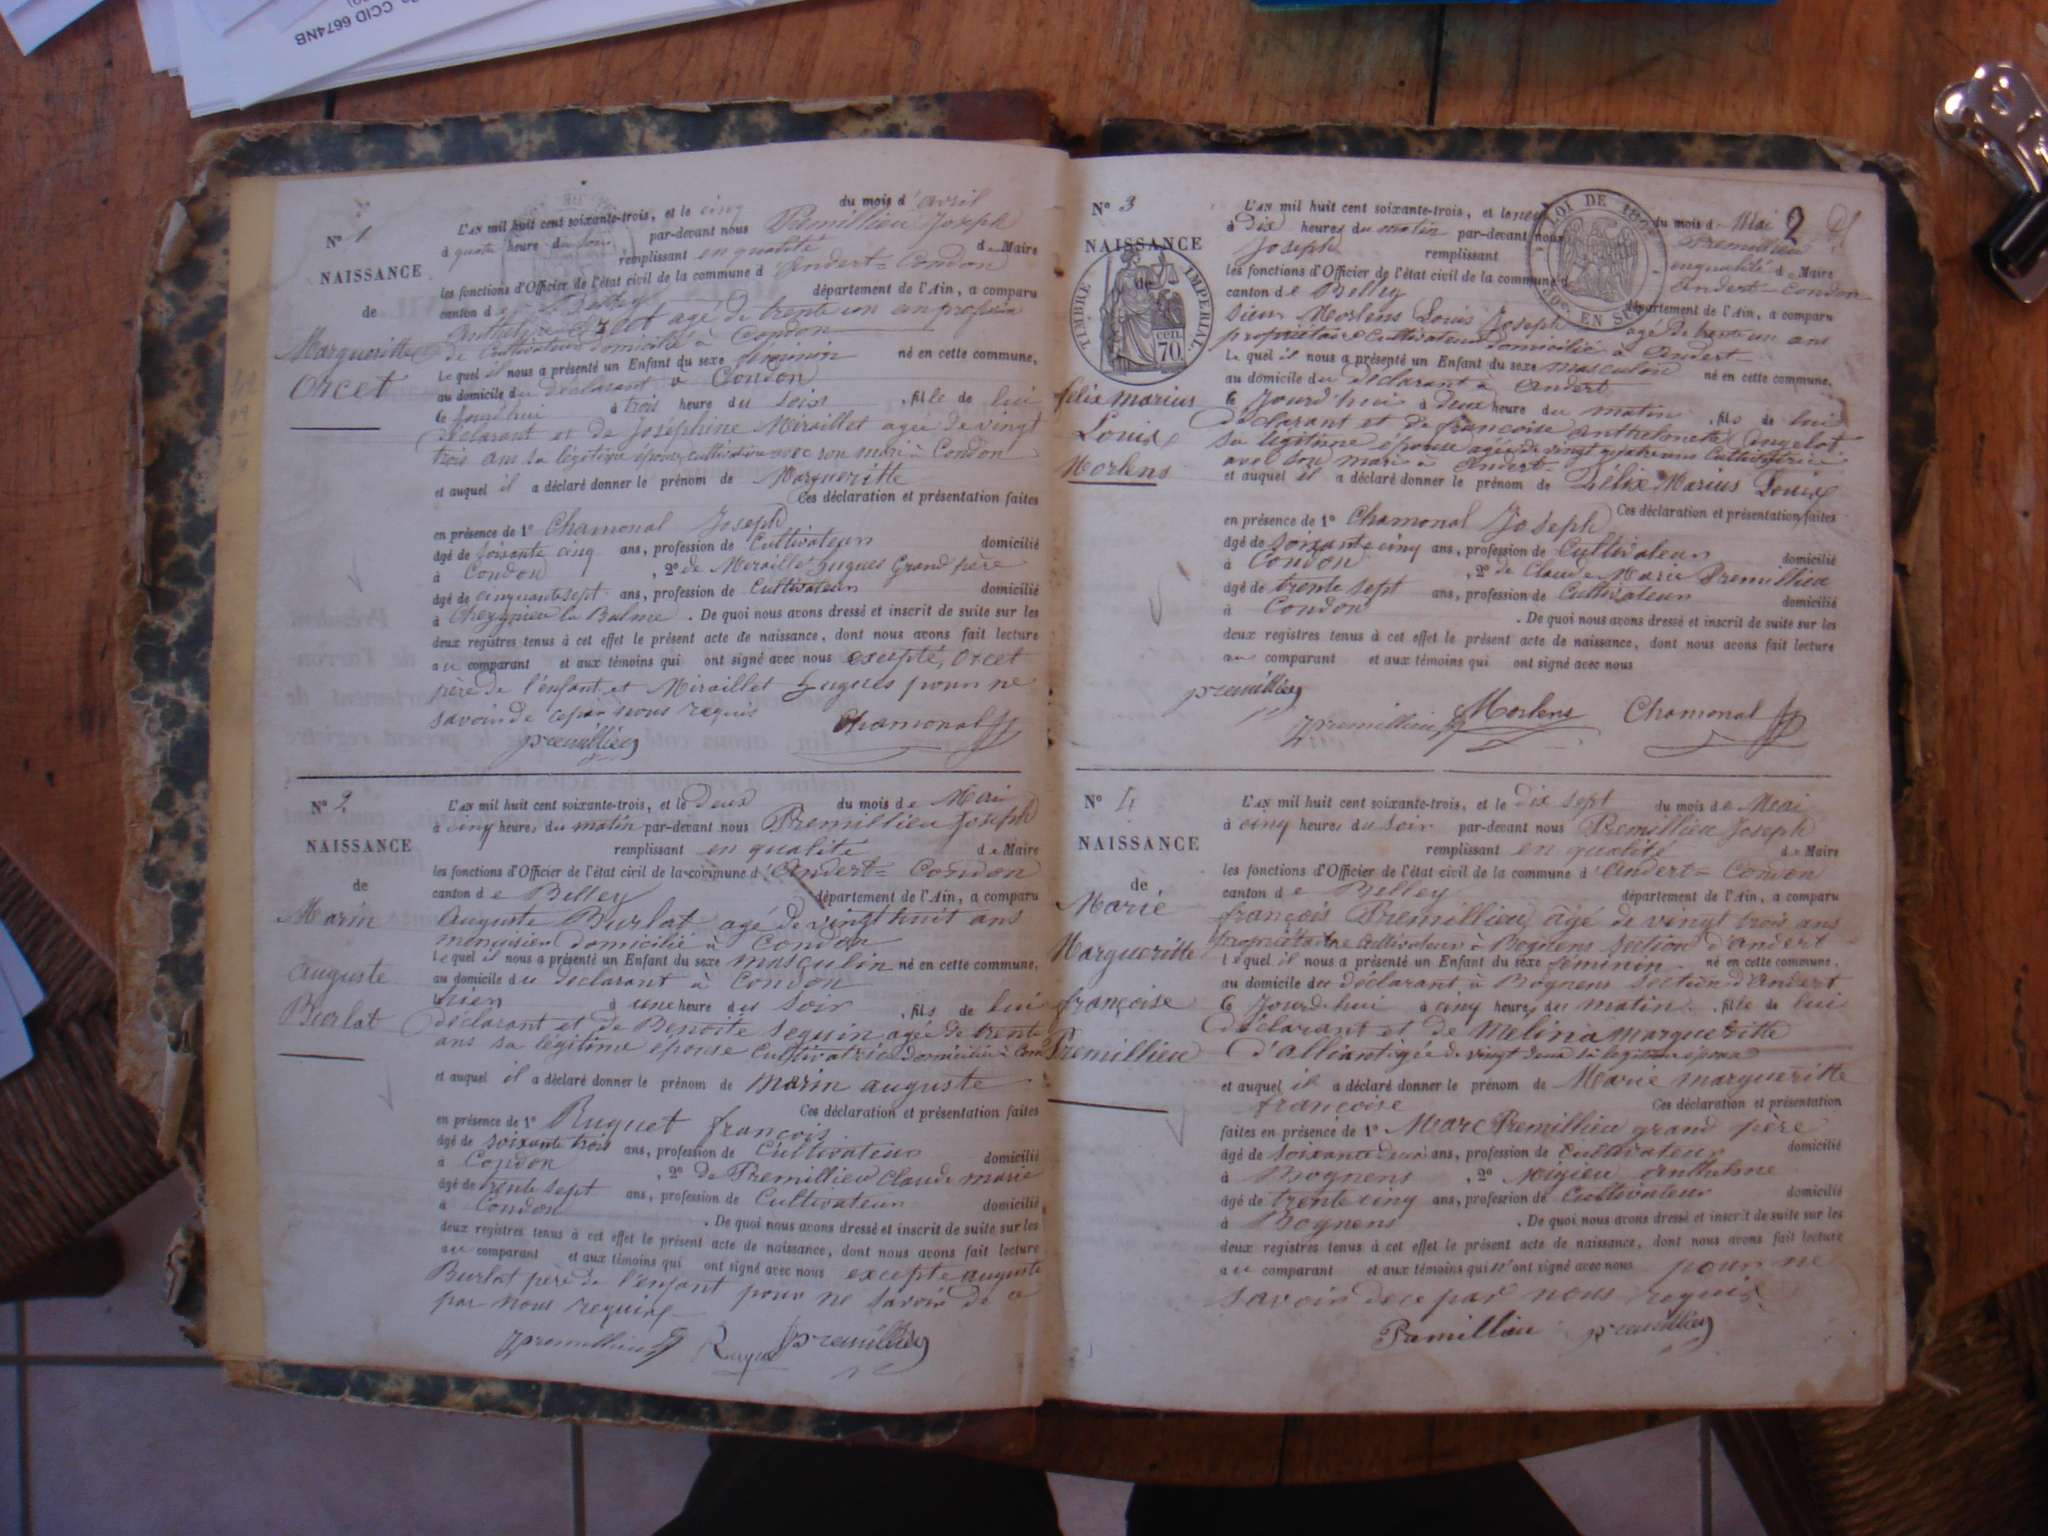 CCID 6674NB
N° 1
NAISSANCE
de
Margueritte
Orcet
L'AN mil huit cent soixante-trois, et le cinq du mois d'avril
à quatre heure du soir par-devant nous Premillieu Joseph
remplissant en qualité de Maire
les fonctions d'Officier de l'état civil de la commune d'Andert=Condon
canton de Belley département de l'Ain, a comparu
Orcet agé de trente un an profession
de Cultivateur domicilié à Condon
Le quel il nous a présenté un Enfant du sexe feminin né en cette commune,
au domicile du déclarant à Condon
Ce jourd'hui à trois heure du soir, fille de lui
déclarant et de Joséphine Miraillet agée de vingt
trois ans sa légitime épouse, cultivatrice avec son mari à Condon
et auquel il a déclaré donner le prénom de Margueritte
Ces déclaration et présentation faites
en présence de 1° Chamonal Joseph
âgé de soixante cinq ans, profession de Cultivateur domicilié
à Condon, 2° de Miraillet hugues Grand père
âgé de cinquante sept ans, profession de Cultivateur domicilié
à Cheygnieu la Balme. De quoi nous avons dressé et inscrit de suite sur les
deux registres tenus à cet effet le présent acte de naissance, dont nous avons fait lecture
au comparant et aux témoins qui ont signé avec nous excepté, Orcet
père de l'enfant et Miraillet hugues pour ne
savoir de ce par nous requis
Chamonal
premillieu
N° 2
NAISSANCE
de
Marin
auguste
Burlat
L'AN mil huit cent soixante-trois, et le deux du mois de Mai
à cinq heures du matin par-devant nous Premillieu Joseph
remplissant en qualité de Maire
les fonctions d'Officier de l'état civil de la commune d'Andert=Condon
canton de Belley département de l'Ain, a comparu
Auguste Burlat agé de vingt huit ans
menuisier domicilié à Condon
Le quel il nous a présenté un Enfant du sexe masculin né en cette commune,
au domicile du déclarant à Condon
hier à une heure du soir, fils de lui
déclarant et de Benoite Seguin agée de trente
ans sa legitime épouse Cultivatrice domiciliée à
et auquel il a déclaré donner le prénom de marin auguste
Ces déclaration et présentation faites
en présence de 1° Ruguet françois
âgé de soixante trois ans, profession de Cultivateur domicilié
à Condon, 2° de Premillieu Claude marie
âgé de trente sept ans, profession de Cultivateur domicilié
à Condon. De quoi nous avons dressé et inscrit de suite sur les
deux registres tenus à cet effet le présent acte de naissance, dont nous avons fait lecture
au comparant et aux témoins qui ont signé avec nous excepté auguste
Burlat père de l'enfant pour ne savoir de ce
par nous requis
premillieu premillieu
N° 3
NAISSANCE
de
TIMBRE IMPERIAL
cen. 70
felix marius
Louis
Morlens
LOI DE
EN SUS
2
L'AN mil huit cent soixante-trois, et le neuf du mois de Mai
à Dix heures du matin par-devant nous Premillieu
Joseph remplissant en qualité de Maire
les fonctions d'Officier de l'état civil de la commune d'Andert=Condon
canton de Belley département de l'Ain, a comparu
sieur Morlens Louis Joseph agé de trente un ans
propriétaire Cultivateur domicilié à Andert
Le quel il nous a présenté un Enfant du sexe masculin né en cette commune,
au domicile du déclarant à Andert
Ce Jourd'huis à deux heure du matin, fils de lui
déclarant et de françoise Anthelmette
sa légitime épouse agée de vingt quatre ans Cultivatrice
avec son mari à Andert
et auquel il a déclaré donner le prénom de Félix Marius Louis
Ces déclaration et présentation faites
en présence de 1° Chamonal Joseph
âgé de soixante cinq ans, profession de Cultivateur domicilié
à Condon, 2° de Claude Marie Premillieu
âgé de trente sept ans, profession de Cultivateur domicilié
à Condon. De quoi nous avons dressé et inscrit de suite sur les
deux registres tenus à cet effet le présent acte de naissance, dont nous avons fait lecture
au comparant et aux témoins qui ont signé avec nous
premillieu
premillieu Morlens Chamonal
N° 4
NAISSANCE
de
Marie
Margueritte
françoise
Premillieu
L'AN mil huit cent soixante-trois, et le dix sept du mois de Mai
à cinq heures du soir par-devant nous Premillieu Joseph
remplissant en qualité de Maire
les fonctions d'Officier de l'état civil de la commune d'Andert=Condon
canton de Belley département de l'Ain, a comparu
françois Premillieu âgé de vingt trois ans
propriétaire Cultivateur à Bognens section d'andert
Le quel il nous a présenté un Enfant du sexe féminin né en cette commune,
au domicile du déclarant à Bognens section d'Andert
Ce Jourd'hui à cinq heures du matin, fille de lui
déclarant et de Melinia margueritte
agée de vingt deux sa legitime épouse
et auquel il a déclaré donner le prénom de Marie margueritte
françoise Ces déclaration et présentation
faites en présence de 1° Marc Premillieu grand père
âgé de soixante deux ans, profession de Cultivateur domicilié
à Bognens, 2° Migieu anthelme
âgé de trente cinq ans, profession de Cultivateur domicilié
à Bognens. De quoi nous avons dressé et inscrit de suite sur les
deux registres tenus à cet effet le présent acte de naissance, dont nous avons fait lecture
au comparant et aux témoins qui n'ont signé avec nous pour ne
savoir de ce par nous requis
Pramillieu premillieu